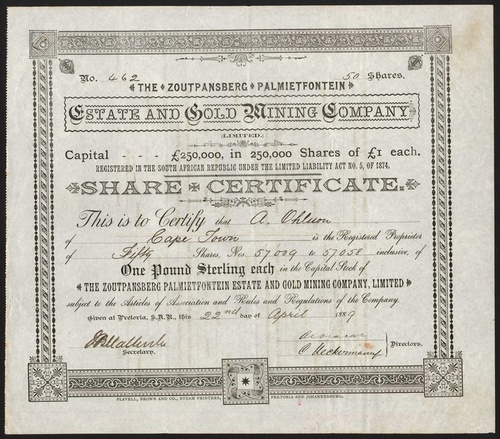 No. 462 50 Shares.
THE ZOUTPANSBERG PALMIETFONTEIN
ESTATE AND GOLD MINING COMPANY
(LIMITED.)
Capital - - - £250,000, in 250,000 Shares of £1 each.
REGISTERED IN THE SOUTH AFRICAN REPUBLIC UNDER THE LIMITED LIABILITY ACT NO. 5, OF 1874.
SHARE CERTIFICATE.
This is to Certify that A. Ohlsson
of Cape Town is the Registered Proprietor
of Fifty Shares, Nos. 57009 to 57058 inclusive, of
One Pound Sterling each in the Capital Stock of
THE ZOUTPANSBERG PALMIETFONTEIN ESTATE AND GOLD MINING COMPANY, LIMITED
subject to the Articles of Association and Rules and Regulations of the Company.
Given at Pretoria, S.A.R., this 22nd day of April 1889
Secretary.
Directors.
PLAVELL, BROWN AND CO., STEAM PRINTERS, PRETORIA AND JOHANNESBURG.